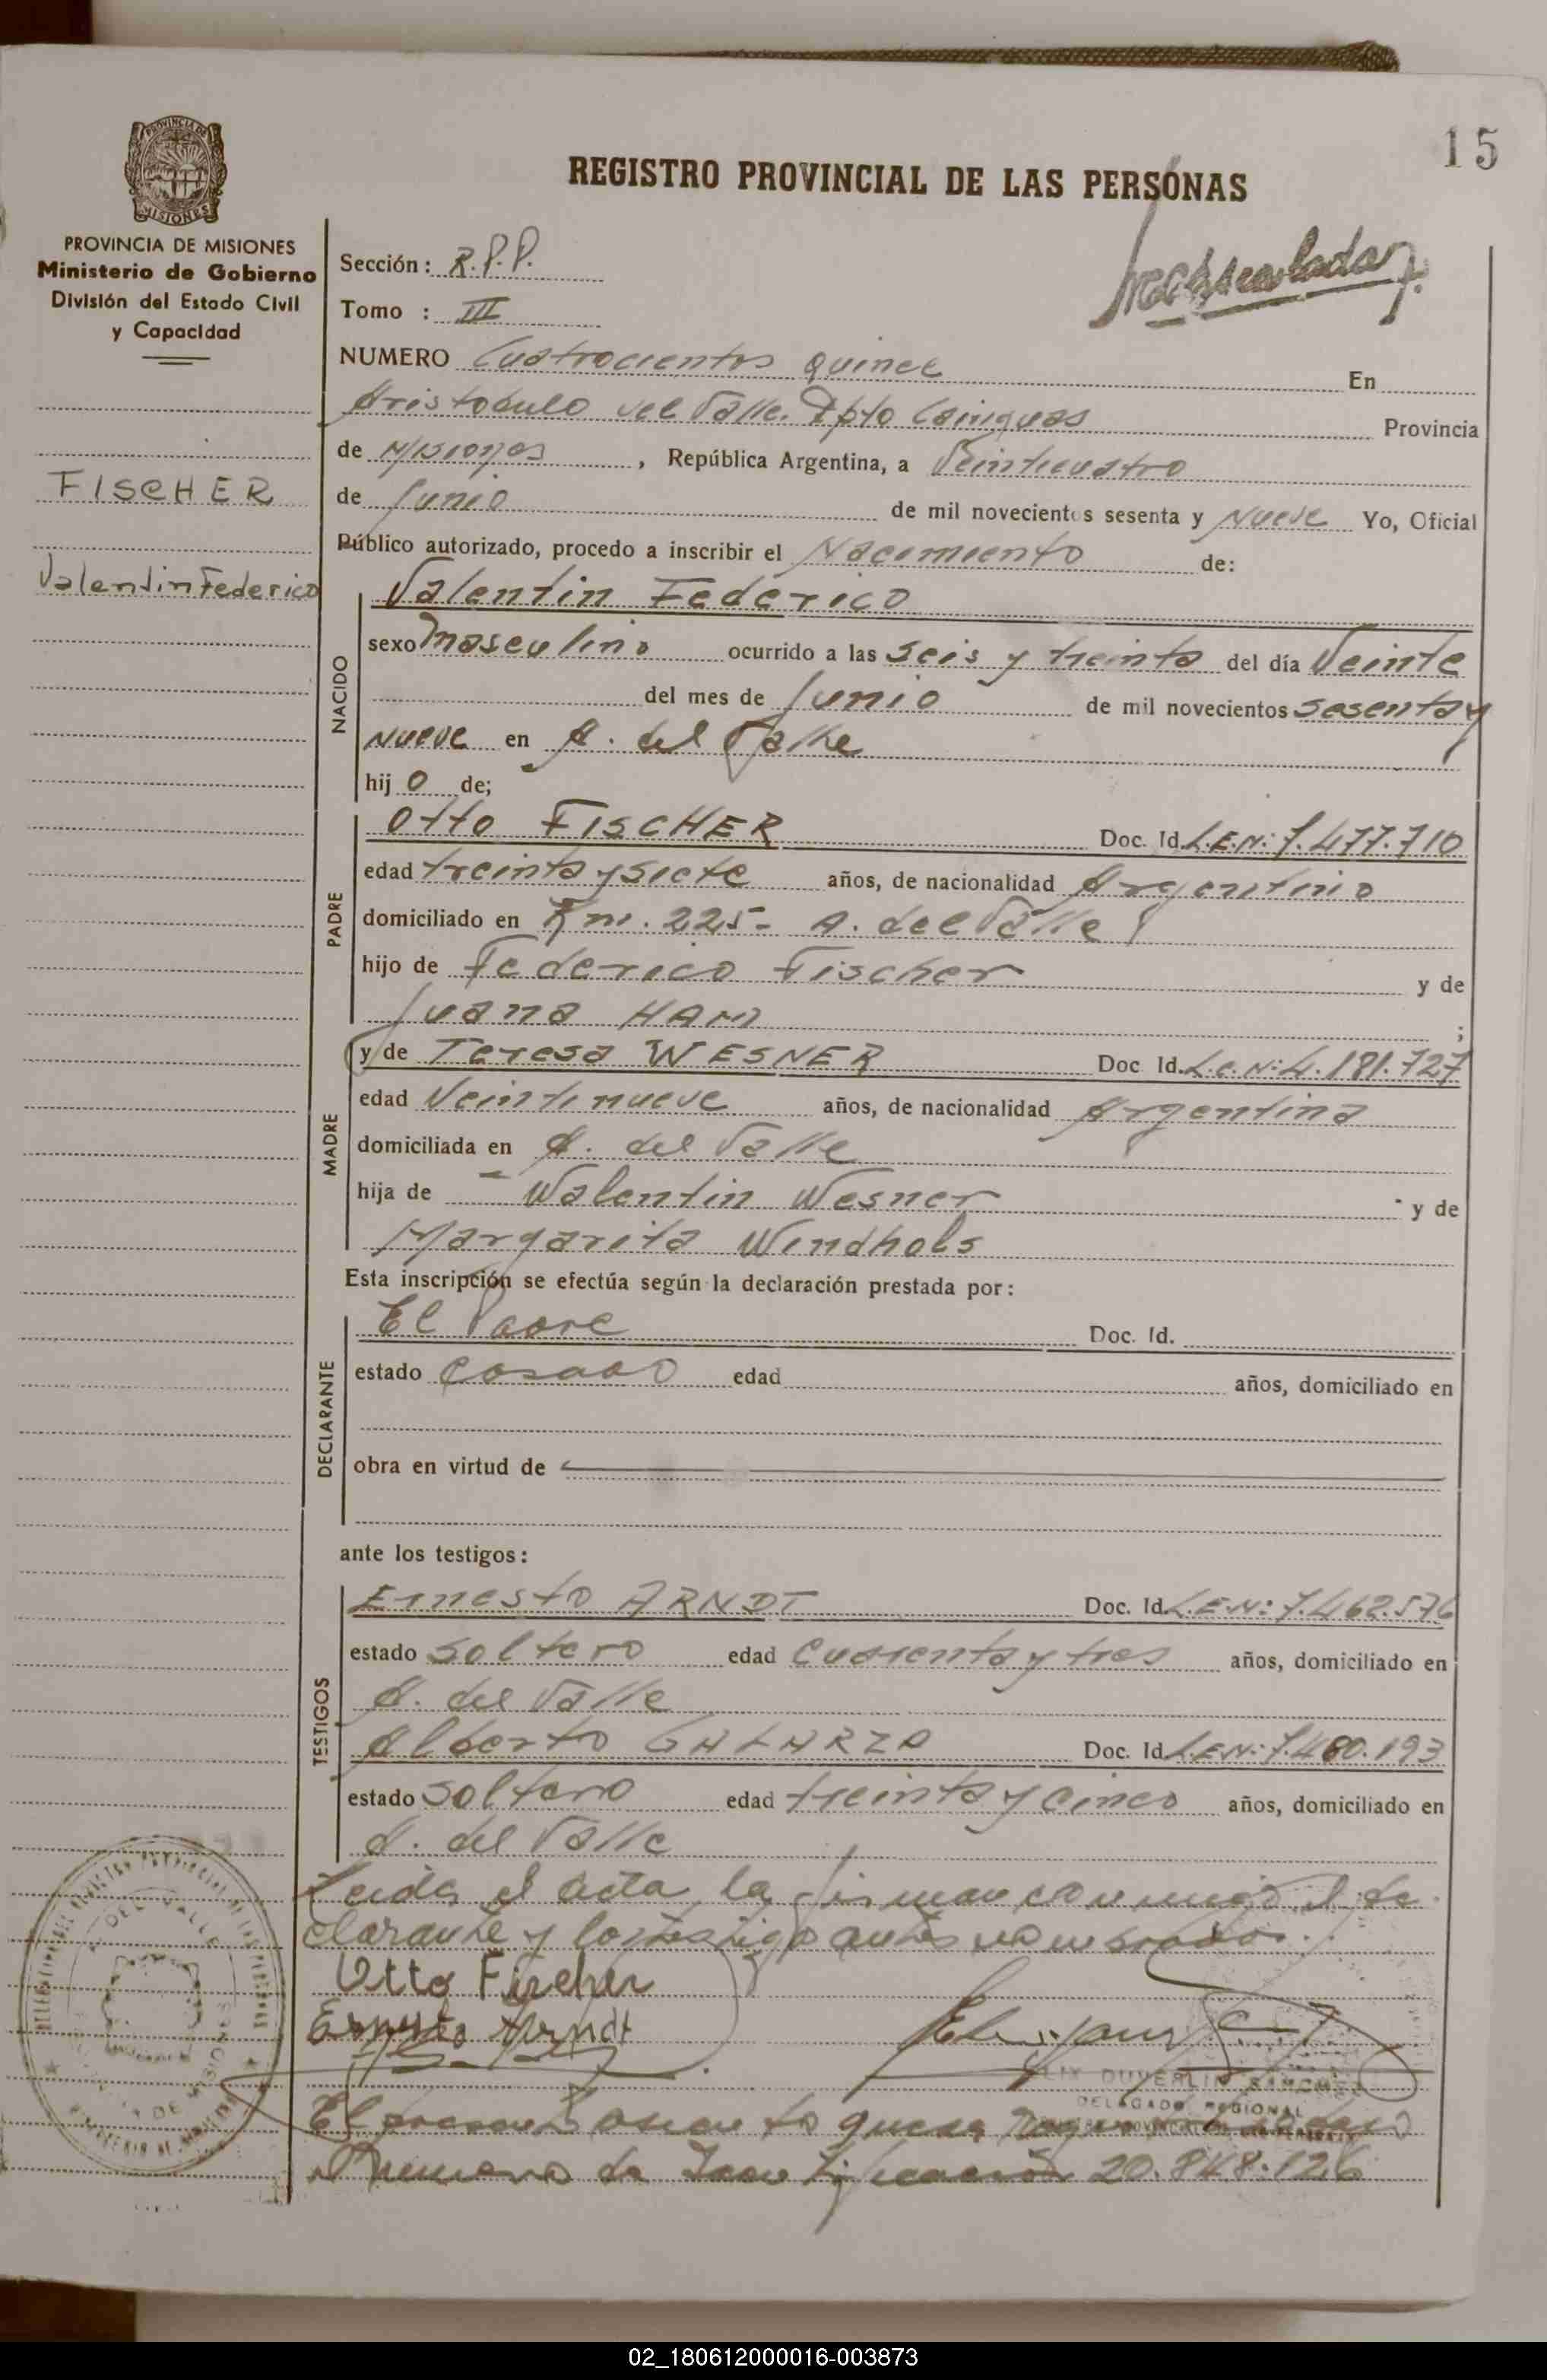 15
REGISTRO PROVINCIAL DE LAS PERSONAS
PROVINCIA DE
MISIONES
PROVINCIA DE MISIONES
Ministerio de Gobierno
División del Estado Civil
y Capacidad
FISCHER
Valentin Federico
Sección: R.P.P.
Tomo : III
NUMERO Cuatrocientos quince En
Aristobulo del Valle. Dpto Cainguas Provincia
de Misiones, República Argentina, a Veinticuatro
de Junio de mil novecientos sesenta y Nueve Yo, Oficial
Público autorizado, procedo a inscribir el Nacimiento de:
NACIDO
Valentin Federico
sexo Masculino ocurrido a las seis y treinta del día Veinte
del mes de Junio de mil novecientos sesenta y
Nueve en A. del Valle
hij o de;
PADRE
Otto FISCHER Doc. Id. L.E.N: 7.477.710
edad treinta y siete años, de nacionalidad Argentino
domiciliado en Km. 225- A. del Valle
hijo de Federico Fischer y de
Juana HAM ;
MADRE
y de Teresa WESNER Doc Id. L.C.N: 4.181.727
edad Veintinueve años, de nacionalidad Argentina
domiciliada en A. del Valle
hija de Walentin Wesner y de
Margarita Windhols
Esta inscripción se efectúa según la declaración prestada por:
DECLARANTE
El Padre Doc. Id.
estado casado edad años, domiciliado en
obra en virtud de
ante los testigos:
TESTIGOS
Ernesto ARNDT Doc. Id. L.E.N: 7.462.576
estado soltero edad cuarenta y tres años, domiciliado en
A. del Valle
Alberto GALARZA Doc. Id. L.E.N: 7.480.193
estado soltero edad treinta y cinco años, domiciliado en
A. del Valle
Leida el acta, la firman conmigo el de-
clarante y los testigos antes nombrados.
Otto Fischer
Ernesto Arndt
DUVERLIN SANCHEZ
DELEGADO REGIONAL
El queda
Numero de Identificación 20.848.126
02_180612000016-003873